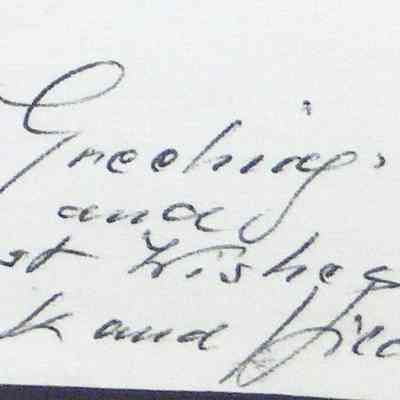 Greetings
and
st Wishes
k and